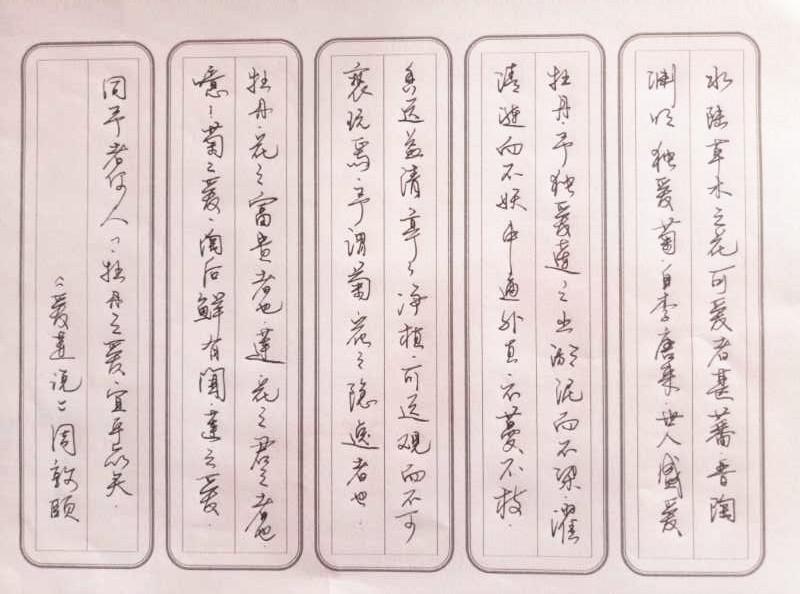 水陆草木之花可爱者甚蕃·晋陶
渊明独爱菊·自李唐来·世人盛爱
牡丹·予独爱莲之出淤泥而不染·濯
清涟而不妖·中通外直·不蔓不枝·
香远益清·亭々净植·可远观而不可
亵玩焉·予谓菊·花之隐逸者也·
牡丹·花之富贵者也·莲·花之君子者也·
噫！菊之爱·陶后鲜有闻·莲之爱·
同予者何人？牡丹之爱·宜乎众矣·
《爱莲说》周敦颐